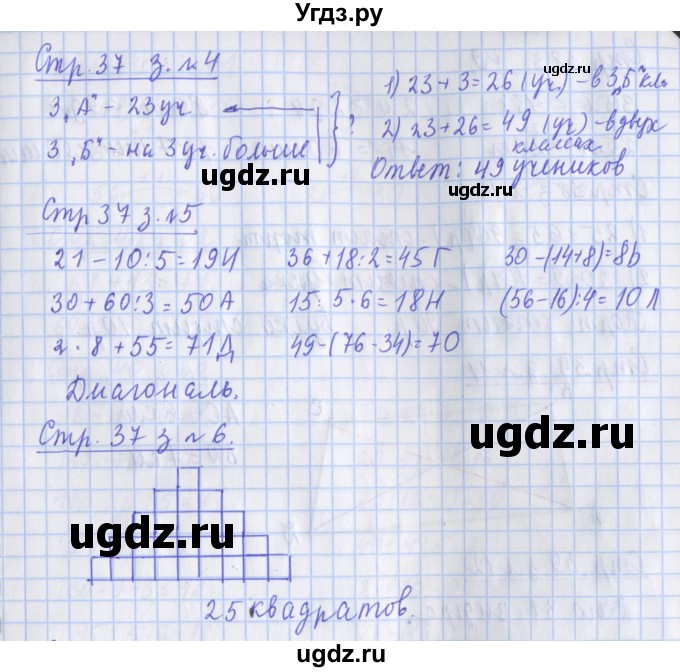 Угдз.ру
Стр. 37 з. №4
3 „А" - 23 уч
3 „Б" - на 3 уч. больше
?
1) 23 + 3 = 26 (уч) - в 3„Б" кл
2) 23 + 26 = 49 (уч) - в двух
классах
Ответ: 49 учеников
Стр 37 з. №5
21 - 10 : 5 = 19 И 36 + 18 : 2 = 45 Г 30 - (14 + 8) = 8 Ь
30 + 60 : 3 = 50 А 15 : 5 · 6 = 18 Н (56 - 16) : 4 = 10 Л
2 · 8 + 55 = 71 Д 49 - (76 - 34) = 7 О
Диагональ.
Стр. 37 з №6.
25 квадратов.
ugdz.ru
ugdz.ru
ugdz.ru
ugdz.ru
ugdz.ru
ugdz.ru
ugdz.ru
ugdz.ru